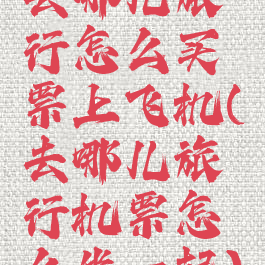 去哪儿旅
行怎么买
票上飞机(
去哪儿旅
行机票怎